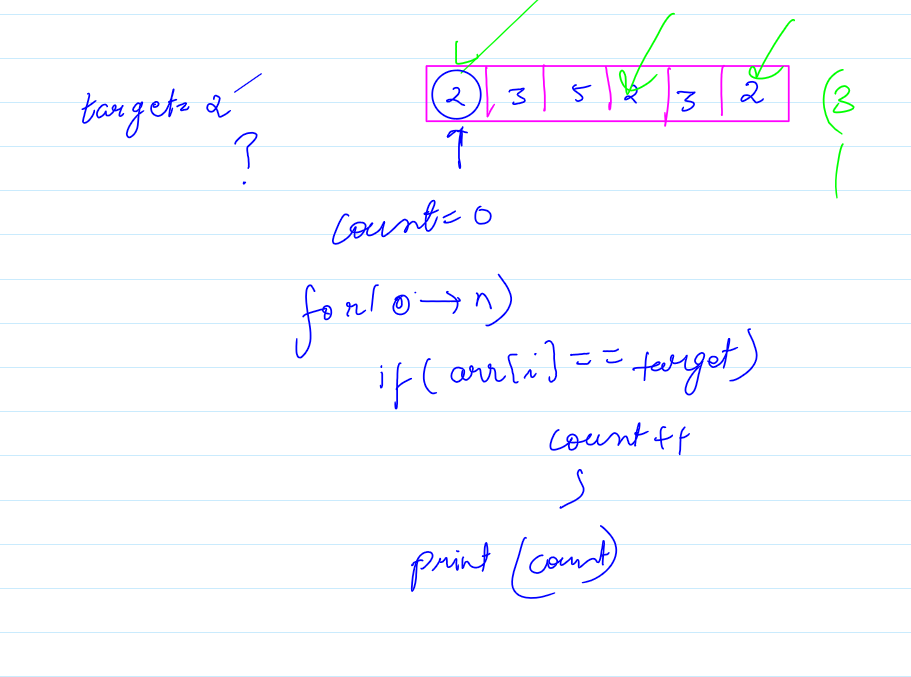 target= 2
?
2 3 5 2 3 2
3
count= 0
for( 0 → n)
if( arr[i] == target)
count++
print (count)